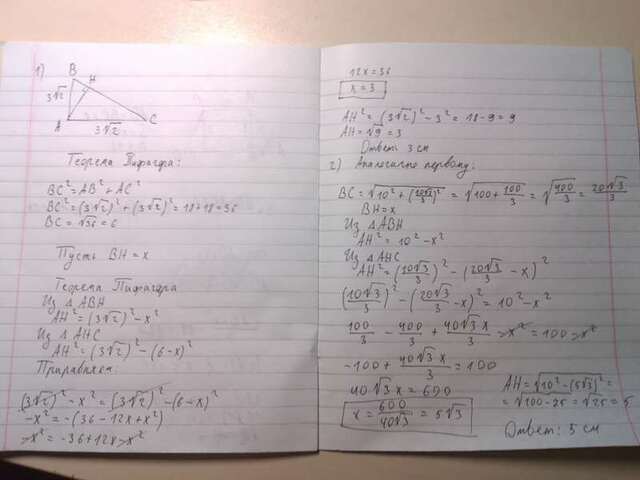 1)
B
H
3√2
A
3√2
C
Теорема Пифагора:
BC² = AB² + AC²
BC² = (3√2)² + (3√2)² = 18 + 18 = 36
BC = √36 = 6
Пусть BH = x
Теорема Пифагора
Из △ABH
AH² = (3√2)² - x²
Из △AHC
AH² = (3√2)² - (6-x)²
Приравняем:
(3√2)² - x² = (3√2)² - (6-x)²
-x² = -(36 - 12x + x²)
-x² = -36 + 12x - x²
12x = 36
x = 3
AH² = (3√2)² - 3² = 18 - 9 = 9
AH = √9 = 3
Ответ: 3 см
2) Аналогично первому:
BC = √10² + (10√3/3)² = √100 + 100/3 = √400/3 = 20√3/3
BH = x
Из △ABH
AH² = 10² - x²
Из △AHC
AH² = (10√3/3)² - (20√3/3 - x)²
(10√3/3)² - (20√3/3 - x)² = 10² - x²
100/3 - 400/3 + 40√3x/3 - x² = 100 - x²
-100 + 40√3x/3 = 100
40√3x = 600
x = 600/40√3 = 5√3
AH = √10² - (5√3)² =
= √100 - 25 = √25 = 5
Ответ: 5 см